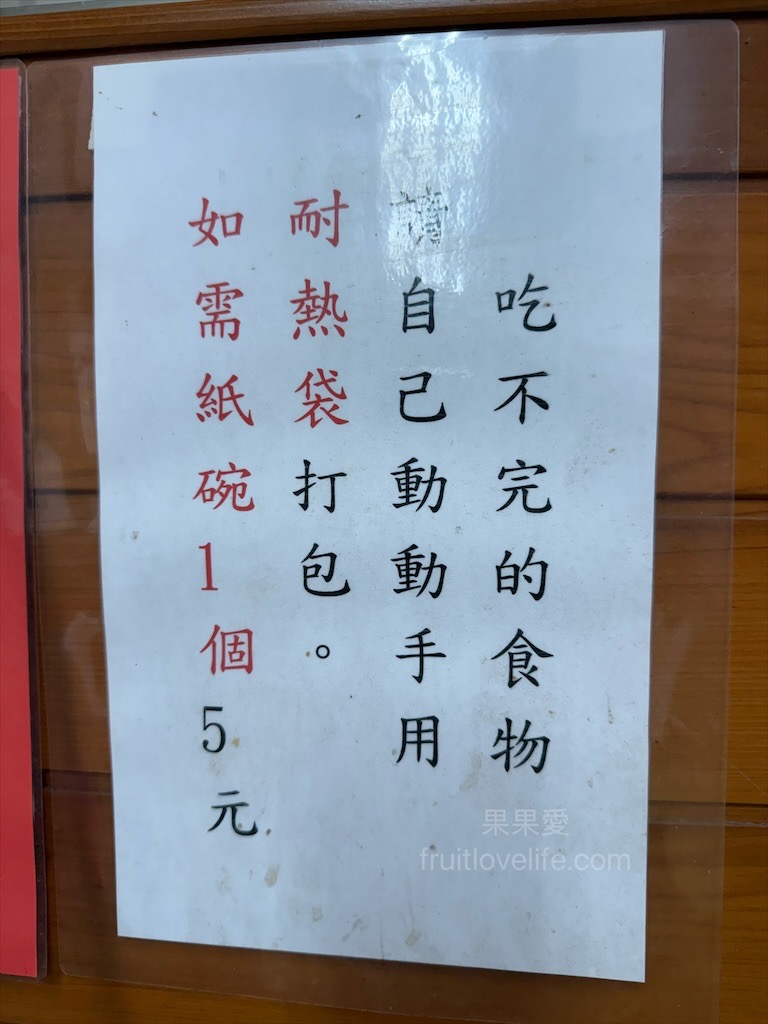 吃不完的食物
請自己動動手用
耐熱袋打包。
如需紙碗1個5元
果果愛
fruitlovelife.com